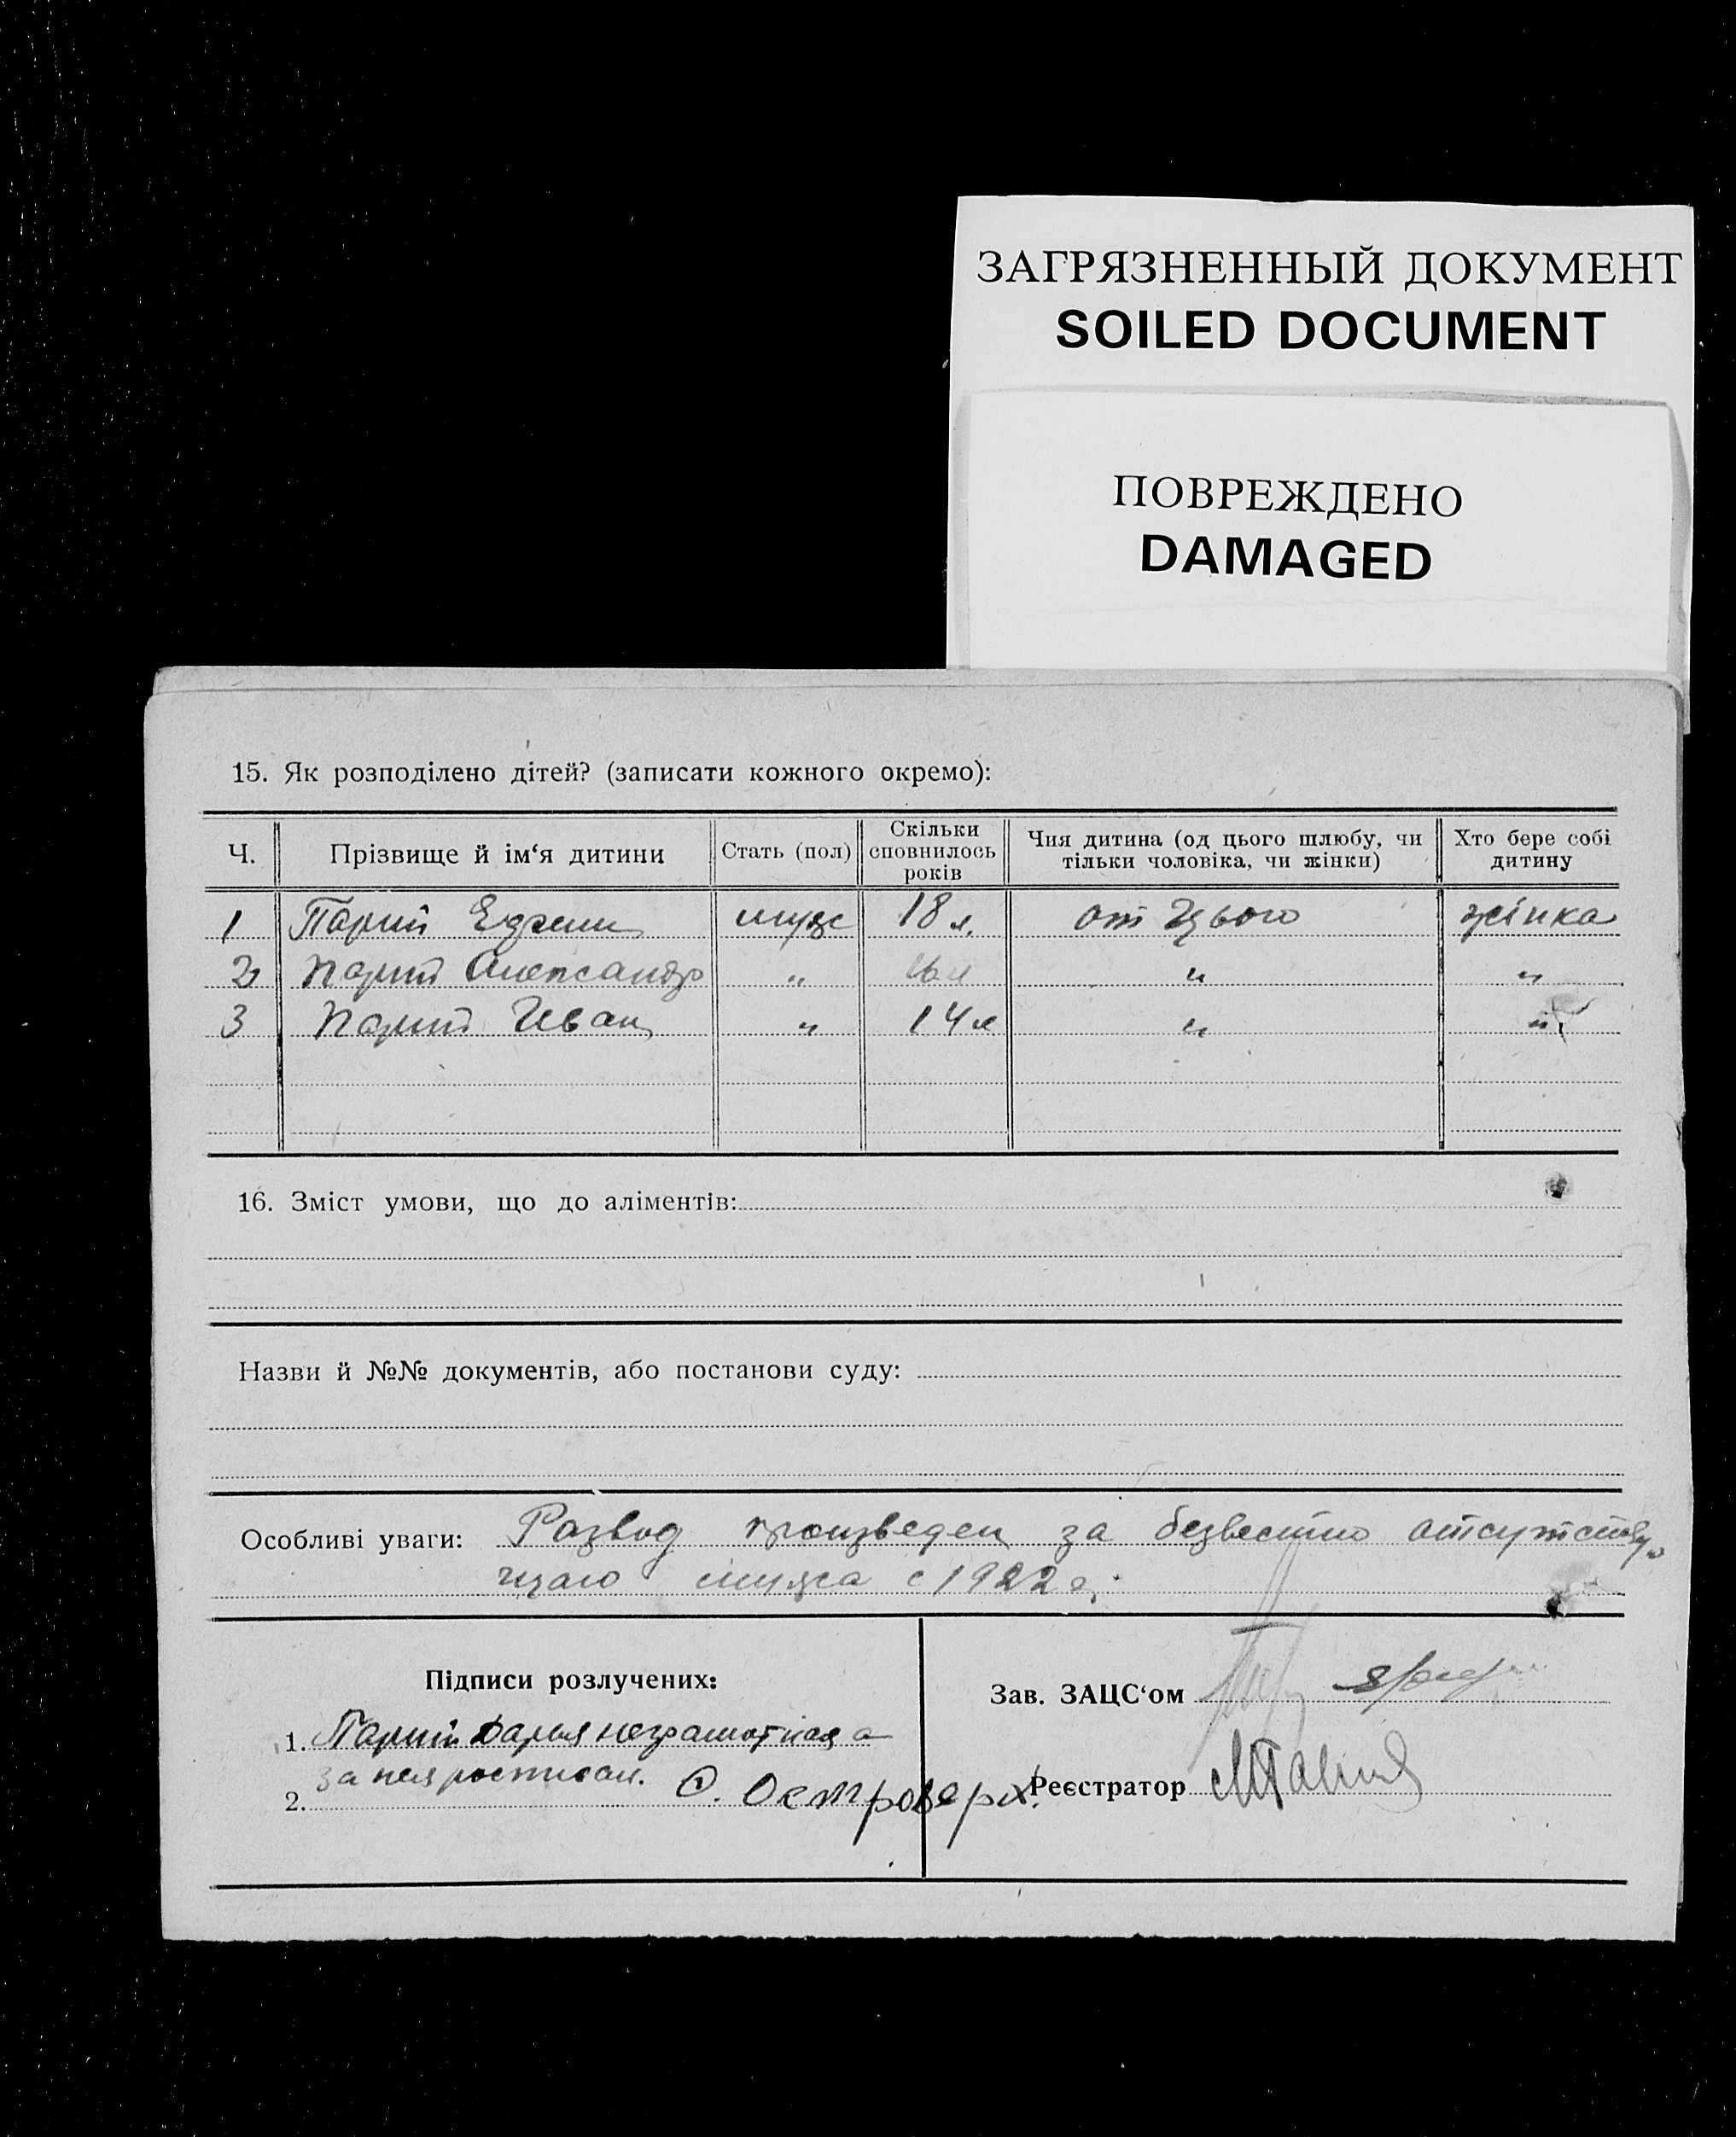 ЗАГРЯЗНЕННЫЙ ДОКУМЕНТ
SOILED DOCUMENT
ПОВРЕЖДЕНО
DAMAGED
15. Як розподілено дітей? (записати кожного окремо):
Ч. Прізвище й ім‘я дитини Стать (пол) Скільки сповнилось років Чия дитина (од цього шлюбу, чи тільки чоловіка, чи жінки) Хто бере собі дитину
1 Парий муж 18 л. от цього жінка
2 Парий Александр " " "
3 Парий Иван " 14 л " "
16. Зміст умови, що до аліментів:
Назви й №№ документів, або постанови суду:
Особливі уваги: Развод произведен за безвестно отсутству
ющаго мужа с 1922 г.
Підписи розлучених:
Зав. ЗАЦС‘ом
1. Парий Дарья неграмотная а
за нея росписал. О. Островерх.
2.
Реєстратор